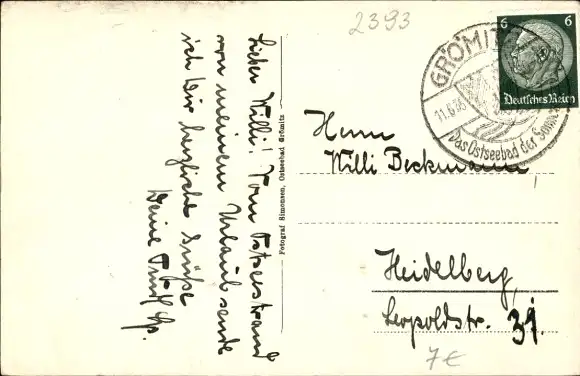 2393
Lieber Willi! Vom Ostseestrand
von meinem Urlaub sende
ich Dir herzliche Grüße
Deine
Fotograf Simonsen, Ostseebad Grömitz
GRÖMITZ
11.6.35
Das Ostseebad der Sonne
6 6
Deutsches Reich
Herrn
Willi Beckmann,
Heidelberg,
Leopoldstr. 31.
7€